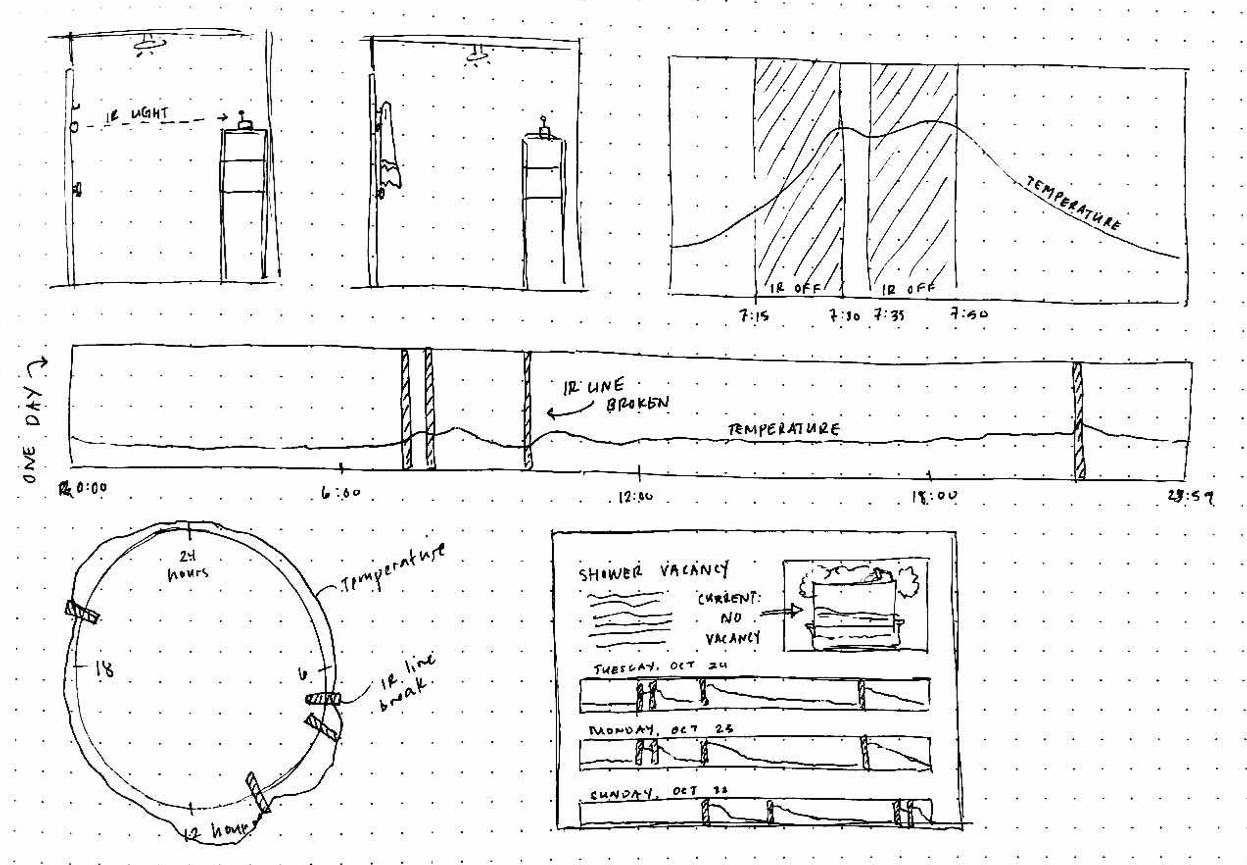 IR LIGHT
TEMPERATURE
IR OFF
IR OFF
7:15
7:30
7:35
7:50
ONE DAY
IR LINE
BROKEN
TEMPERATURE
0:00
6:00
12:00
18:00
23:59
24
hours
Temperature
18
6
IR line
break
12 hours
SHOWER VACANCY
CURRENT:
NO
VACANCY
TUESDAY, OCT 24
MONDAY, OCT 23
SUNDAY, OCT 22